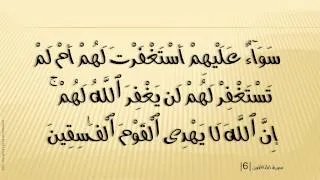 سَوَآءٌ عَلَيْهِمْ أَسْتَغْفَرْتَ لَهُمْ أَمْ لَمْ
تَسْتَغْفِرْ لَهُمْ لَن يَغْفِرَ ٱللَّهُ لَهُمْ ۚ
إِنَّ ٱللَّهَ لَا يَهْدِى ٱلْقَوْمَ ٱلْفَـٰسِقِينَ
|6|